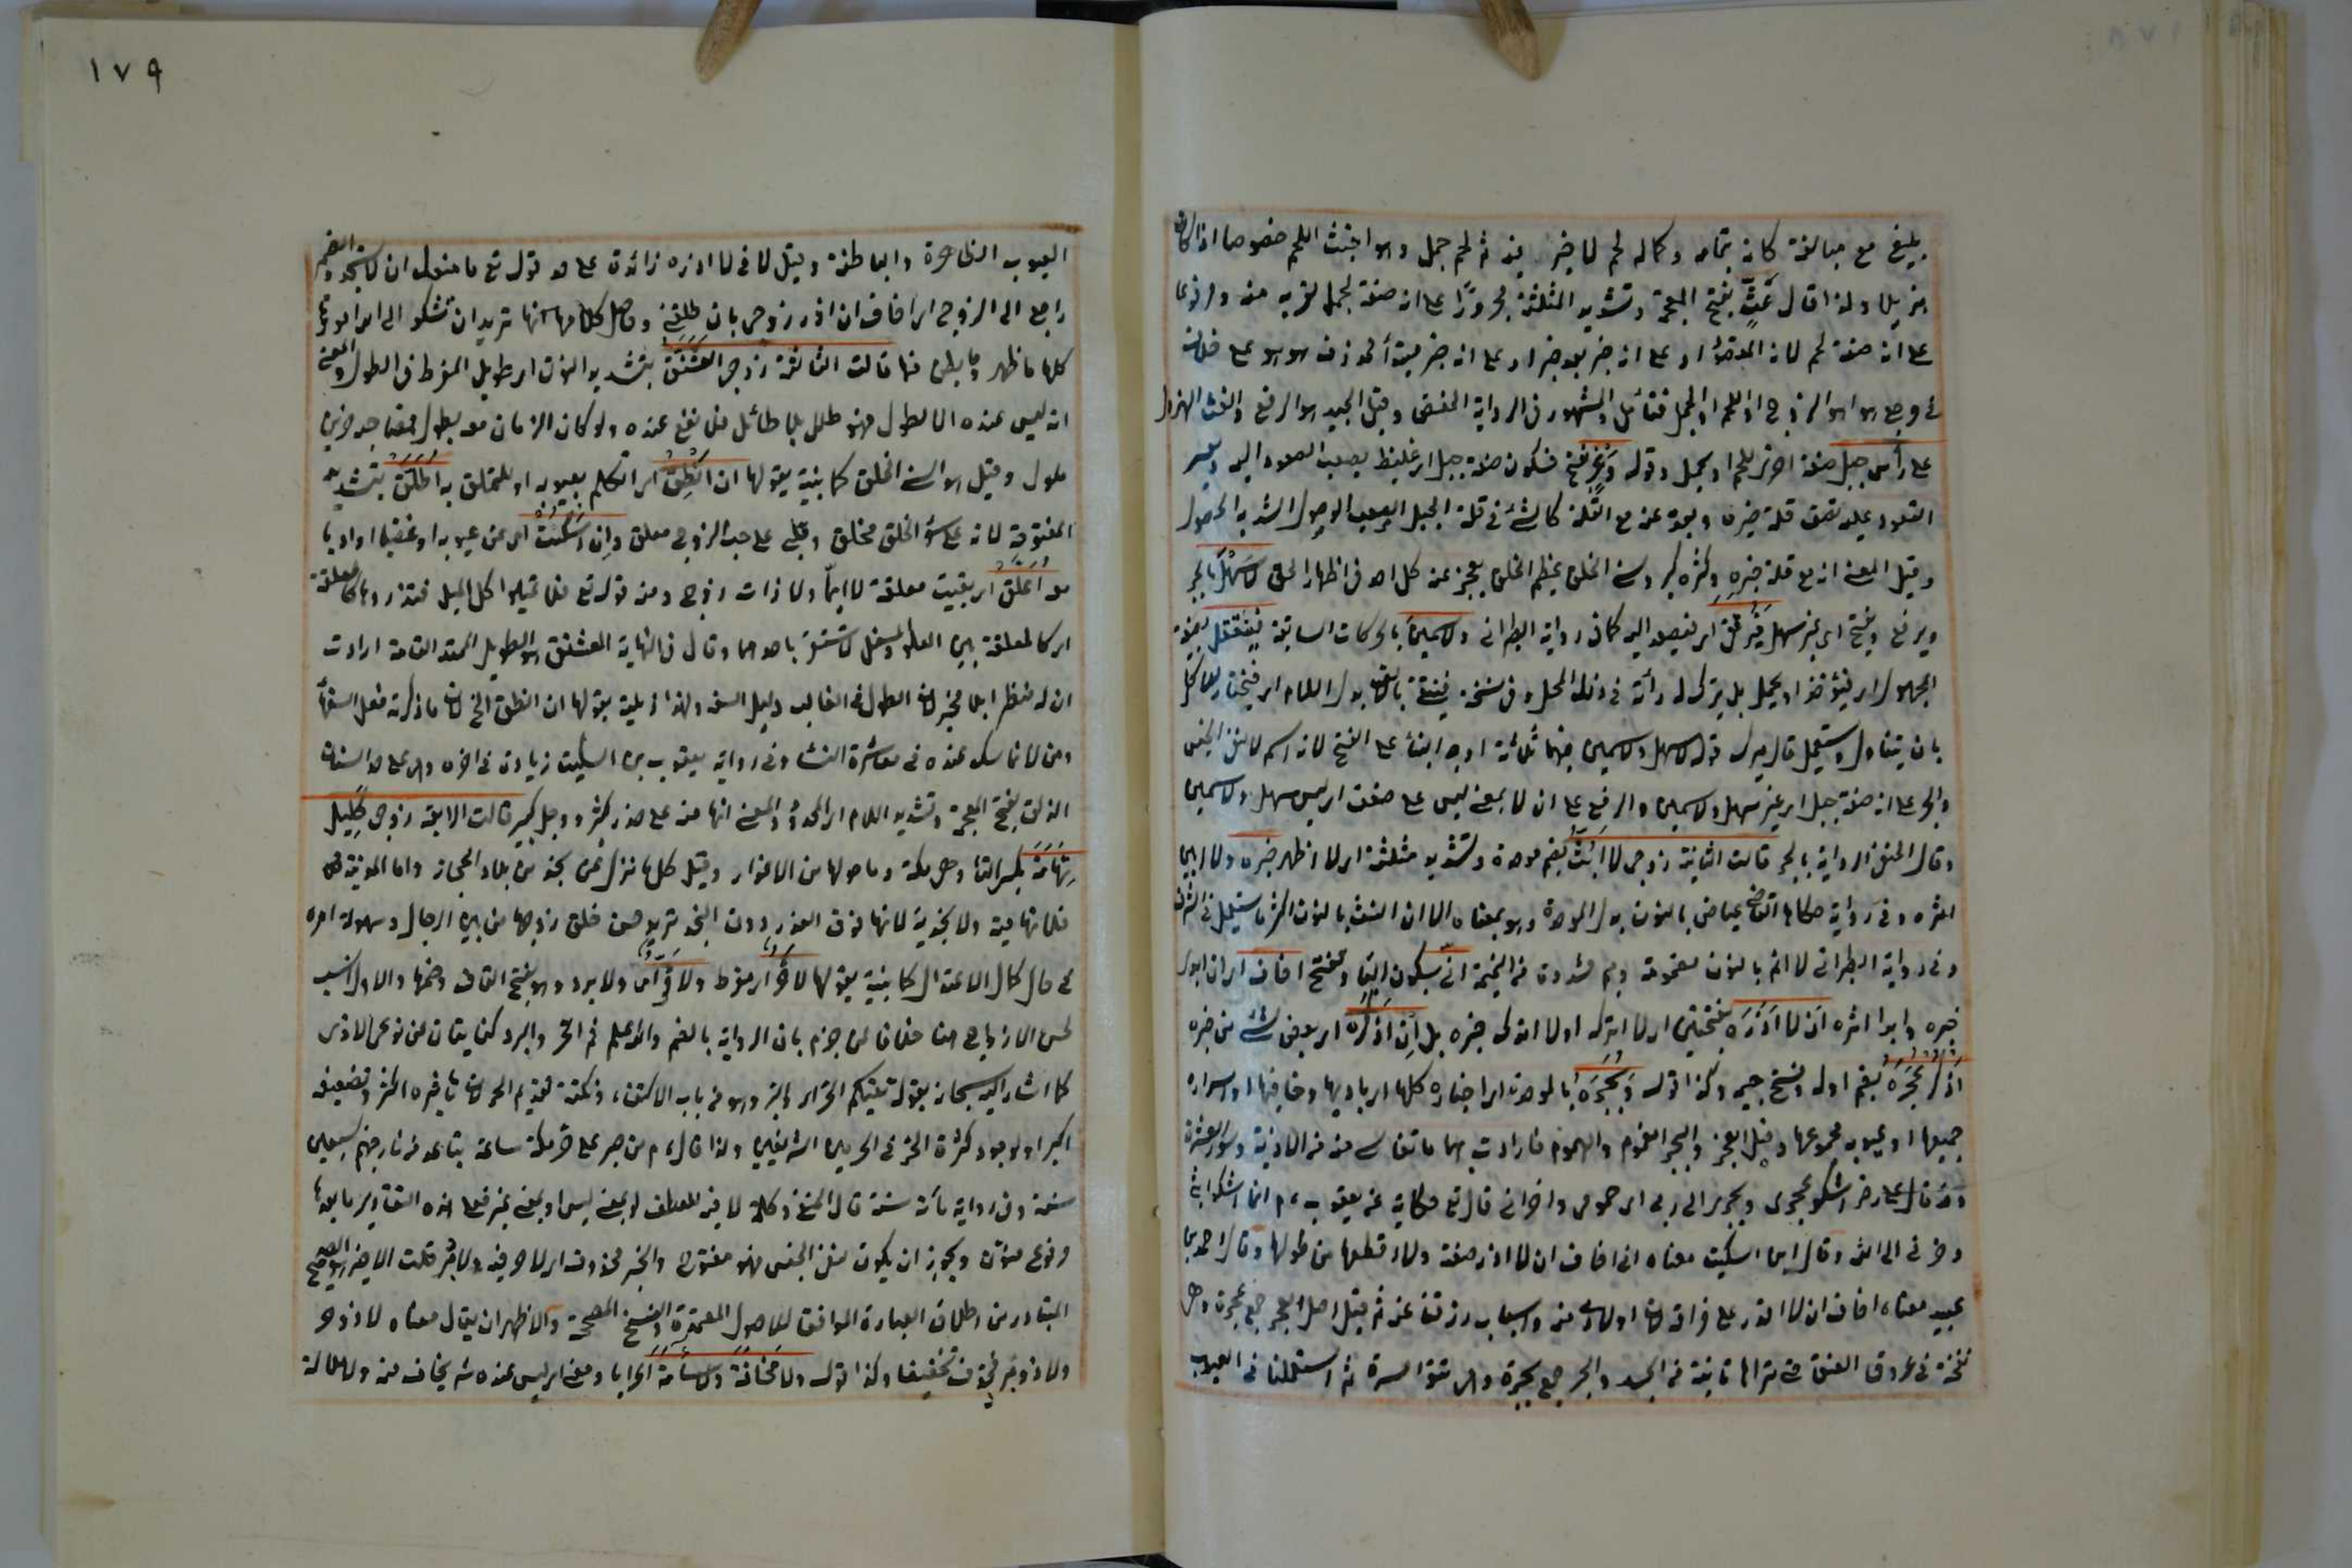 بليغ مع مبالغة كانه بتمامه وكماله لحم لا خير فيه ثم لحم جمل وهو اخبث اللحم خصوصا اذا كان
هزيلا ولذا قال غَثٍّ بفتح المعجمة وتشديد المثلثة مجرورًا على انه صفة لجمل لقربه منه ومرفوعا
على انه صفة لحم لانه المقصود او على انه خبر بعد خبر او على انه خبر مبتدأ محذوف هو هو على خلاف
في مرجع هو اهو الزوج او اللحم او الجمل فتأمل والمشهور في الرواية الخفض وقيل الجيد هو الرفع والغث الهزول
على رأس جبل صفة اخرى للحم او لجمل وقوله وَعْرٍ بفتح فسكون صفة جبل اي غليظ يصعب الصعود اليه ويعسر
القعود عليه تصف قلة خيره وبعده عنه مع القلة كالشئ في قلة الجبل الصعب الوصول الشديد الحصول
وقيل المعنى انه مع قلة خيره وكثرة كبره سئ الخلق عظيم الخلق يعجز عنه كل احد في اظهار الحق لا سَهْلٍ بالجر
ويرفع ويفتح اي غير سهل فَيُرْتَقى اي فيصعد اليه كما في رواية الطبراني ولا سَمِينٍ بالحركات السابقة فَيُنْتَقَل بصيغة
المجهول اي فيؤخذ او يحمل بل يترك لرداءته في ذلك المحل وفي نسخة فينتقى بالالف بدل اللام اي فيختار للاكل
بان يتناول ويستعمل قال ميرك قوله لا سهل ولا سمين فيهما ثلاثة اوجه البناء على الفتح لانه اسم لا لنفي الجنس
والجر على انه صفة جبل اي غير سهل ولا سمين والرفع على ان لا بمعنى ليس على ضعف اي ليس سهل ولا سمين
وقال الحنفي الرواية بالجر قالت الثانية زوجي لا اَبُثُّ بضم موحدة وتشديد مثلثة اي لا اظهر خبره ولا ابين
اثره وفي رواية حكاها القاضي عياض بالنون بدل الموحدة وهو بمعناه الا ان النث بالنون اكثر ما يستعمل في الشر
وفي رواية الطبراني لا انم بالنون مضمومة وميم مشددة من النميمة اني بسكون الياء وتفتح اخاف اي ان ابدى
خبره وابدا اثره اَنْ لا اَذَرَه بفتحتين اي لا اتركه اولا اترك خبره بل اِن اَذْكُرْه اي بعض شئ من خبره
اَذْكُر عُجَرَهُ بضم اوله وفتح جيم وكذا قوله وَبُجَرَهُ بالموحدة اي اخباره كلها اي باديها وخافيها او اسراره
جميعها او عيوبه مجموعها وقيل العجر والبجر الغموم والهموم فارادت بهما ما تقاسى منه من الاذية وسوء العشرة
ومنه قال علي رضي اشكو عجري وبجري الى ربي اي همومي واحزاني قال تع حكاية عن يعقوب ءم انما اشكو بثي
وحزني الى الله وقال ابن السكيت معناه اني اخاف ان لا اذر صفته ولا اقطعها من طولها وقال احمد بن
عبيد معناه اخاف ان لا اقدر على فراقه لان اولادي منه واسباب رزقنا عنه ثم قيل اصل العجر جمع عجرة وهي
نفخة في عروق العنق حتى تراها ناتئة من الجسد والبجر جمع بجرة وهي نتوء السرة ثم استعملا في العيوب
١٧٩
العيوب الظاهرة والباطنة وقيل لا في لا اذره زائدة على حد قوله تع ما منعك ان لا تسجد والضمير
راجع الى الزوج اي اخاف ان اذر زوجي بان طلقني وحاصل كلامها انها تريد ان تشكو الى الله امورها
كلها ما ظهر وما بطن منها قالت الثالثة زوجي العَشَنَّقُ بتشديد النون اي طويل المفرط في الطول والمعنى
انه ليس عنده الا الطول فهو طلل بلا طائل فلا نفع عنده ولو كان الزمان معه يطول معنا جد حزين
ملول وقيل هو السئ الخلق كما بنية بقولها ان اَنْطِقْ اي اتكلم بعيوبه او للتملق به اُطَلَّقْ بتشديد
المفتوحة لانه على سوء الخلق مخلق وقلبي على حب الزوج معلق وان اَسْكُتْ اي عن عيوبه او غضبا او ادبا
معه اُعَلَّقْ اي بقيت معلقة لا ايمًا ولا ذات زوج ومنه قوله تع فلا تميلوا كل الميل فتذروها كالمعلقة
اي كالمعلقة بين العلو والسفل لا تستقر باحدهما وقال في النهاية العشنق هو الطويل الممتد القامة ارادت
ان له منظرا بلا مخبر لان الطول في الغالب دليل السفه ولهذا ذيلته بقولها ان انطق الخ لان ما ذكرته فعل السفهاء
ومن لا تماسك عنده في معاشرة النساء وفي رواية يعقوب بن السكيت زيادة في اخره وهي على حد السنان
المذلق بفتح المعجمة وتشديد اللام اي المحدد والمعنى انها منه على حذر كثير ووجل كبير قالت الرابعة زوجي كَلَيْل
تِهَامَةَ بكسر التاء وهي مكة وما حولها من الاغوار وقيل كل ما نزل عن نجد من بلاد الحجاز واما المدينة فهي
فلا تهامية ولا نجدية لانها فوق الغور ودون النجد تريد حسن خلق زوجها من بين الرجال وسهولة امره
في حال كمال الاعتدال كما بنية بقولها لا حَرٌّ اي مفرط ولا قُرٌّ اي ولا برد وهو بفتح القاف وضمها والاول انسب
لحسن الازدواج هنا خلافا لمن جزم بان الرواية بالضم والله اعلم ثم الحر والبرد كنايتان عن نوعي الاذى
كما اشار اليه سبحانه بقوله تقيكم الحر اي والبرد وهو من باب الاكتفاء ونكتة تقديم الحر لان تاثيره اكثر وتضعيفه
اكبر او لوجود كثرة الحر في الحرمين الشريفين ولذا قال ءم من صبر على حر مكة ساعة يتباعد من نار جهنم سبعين
سنة وفي رواية مأة سنة قال الحنفي وكلمة لا فيه للعطف او بمعنى ليس او بمعنى غير فعلى هذه التقادير ما بعدها
مرفوع منون ويجوز ان يكون لنفي الجنس فهو مفتوح والخبر محذوف اي لا حر فيه ولا قر قلت الاخير هو الصحيح
المتبادر من اطلاق العبارة الموافق للاصول المعتمدة والنسخ المصححة والاظهر ان يقال معناه لا ذو حر
ولا ذو قر فحذف تخفيفا وكذا قوله ولا مَخَافَةَ ولا سَآمَةَ اعرابا ومعنى اي ليس عنده شر يخاف منه ولا ملالة